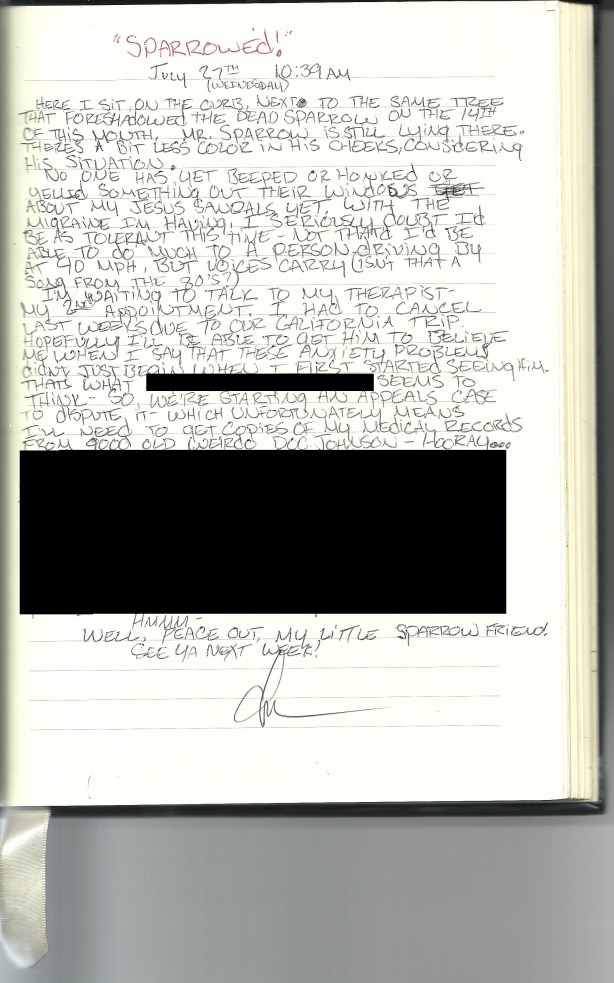 "SPARROWED!"
JULY 27TH 10:39 AM
(WEDNESDAY)
HERE I SIT, ON THE CURB, NEXT TO THE SAME TREE
THAT FORESHADOWED THE DEAD SPARROW ON THE 14TH
OF THIS MONTH. MR. SPARROW IS STILL LYING THERE.
THERE'S A BIT LESS COLOR IN HIS CHEEKS, CONSIDERING
HIS SITUATION.
NO ONE HAS YET BEEPED OR HONKED OR
YELLED SOMETHING OUT THEIR WINDOWS
ABOUT MY JESUS SANDALS YET. WITH THE
MIGRAINE I'M HAVING, I SERIOUSLY DOUBT I'd
BE AS TOLERANT THIS TIME - NOT THAT I'd BE
ABLE TO DO MUCH TO A PERSON DRIVING BY
AT 40 MPH, BUT VOICES CARRY (ISN'T THAT A
SONG FROM THE 80'S?)
I'M WAITING TO TALK TO MY THERAPIST-
MY 2nd APPOINTMENT. I HAD TO CANCEL
LAST WEEKS DUE TO OUR CALIFORNIA TRIP.
HOPEFULLY I'LL BE ABLE TO GET HIM TO BELIEVE
ME WHEN I SAY THAT THESE ANXIETY PROBLEMS
DIDN'T JUST BEGIN WHEN I FIRST STARTED SEEING HIM-
THATS WHAT SEEMS TO
THINK - SO, WE'RE STARTING AN APPEALS CASE
TO DISPUTE IT - WHICH UNFORTUNATELY MEANS
I'LL NEED TO GET COPIES OF MY MEDICAL RECORDS
FROM GOOD OLD WEIRDO DOC JOHNSON - HOORAY...
HMMM-
WELL, PEACE OUT, MY LITTLE SPARROW FRIEND.
SEE YA NEXT WEEK!